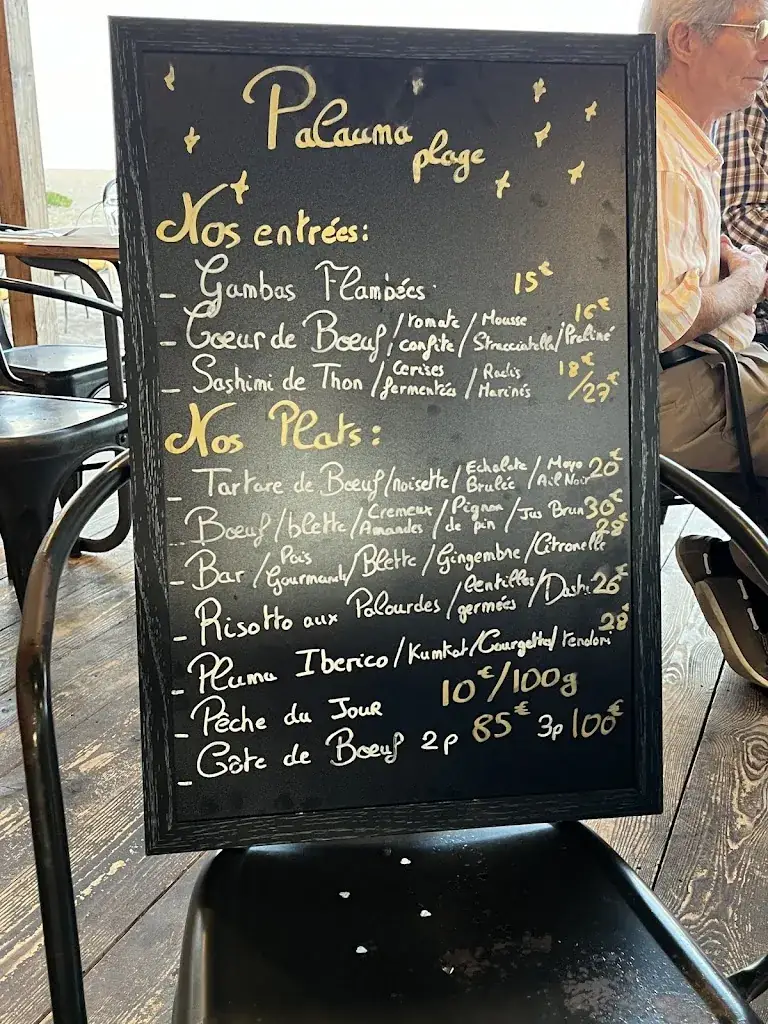 Palauma plage
Nos entrées:
- Gambas Flambées 15€
- Coeur de Boeuf / tomate confite / Mousse Stracciatella / Praliné 16€
- Sashimi de Thon / Cerises fermentées / Radis Marinés 18€ / 27€
Nos Plats:
- Tartare de Boeuf / noisette / Echalote Brulée / Mayo Ail Noir 20€
- Boeuf / blette / Cremeux Amandes / Pignon de pin / Jus Brun 30€
- Bar / Pois Gourmands / Blette / Gingembre / Citronelle 28€
- Risotto aux Palourdes / lentilles germées / Dashi 26€
- Pluma Iberico / Kumkat / Courgette / tendori 28€
- Pêche du Jour 10€/100g
- Côte de Boeuf 2p 85€ 3p 100€